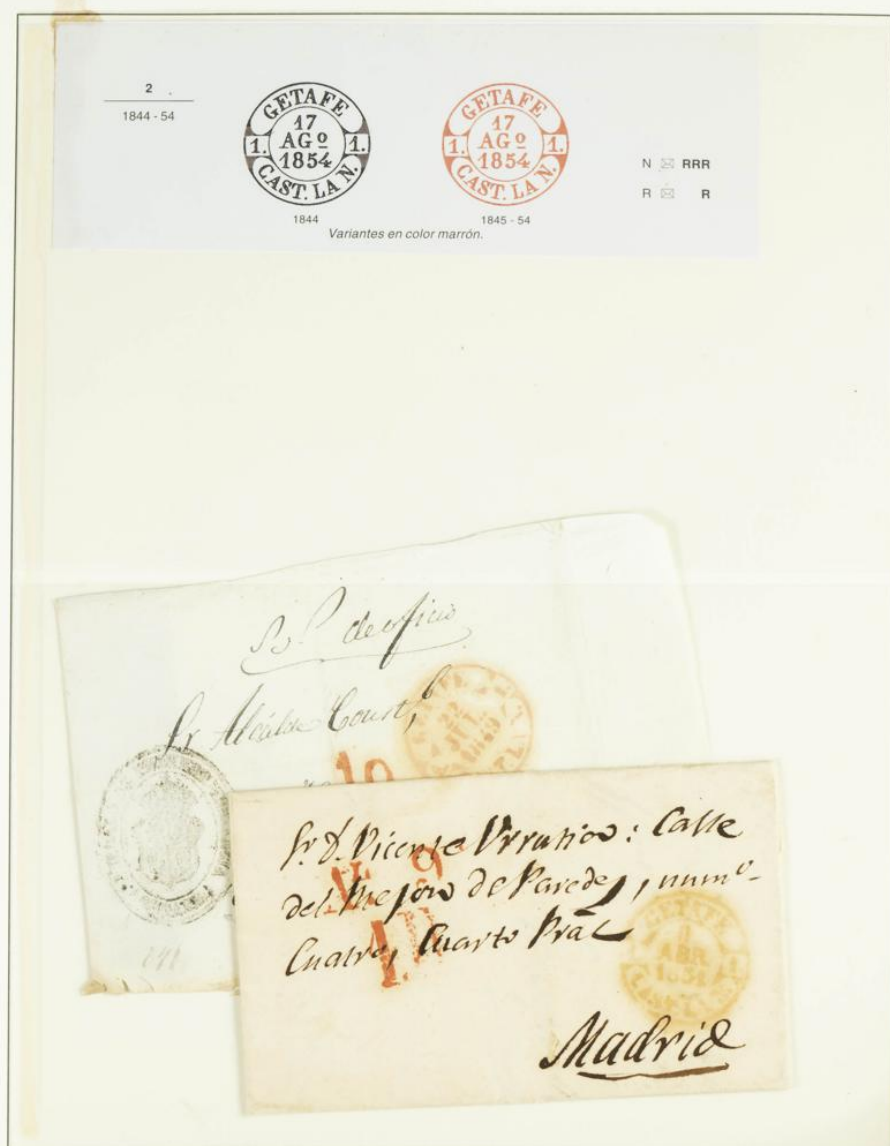 2
1844 - 54
GETAFE
17
AGº
1854
1. 1.
CAST. LA N.
1844
GETAFE
17
AGº
1854
1. 1.
CAST. LA N.
1845 - 54
Variantes en color marrón.
N RRR
R R
de oficio
Sr Alcalde Const.l
22
JUL
1845
10
Sr. D. Vicente Urrutia: Calle
del Meson de Paredes, numo
Cuatro, Cuarto Pral
9
GETAFE
1
ABR
1851
Madrid